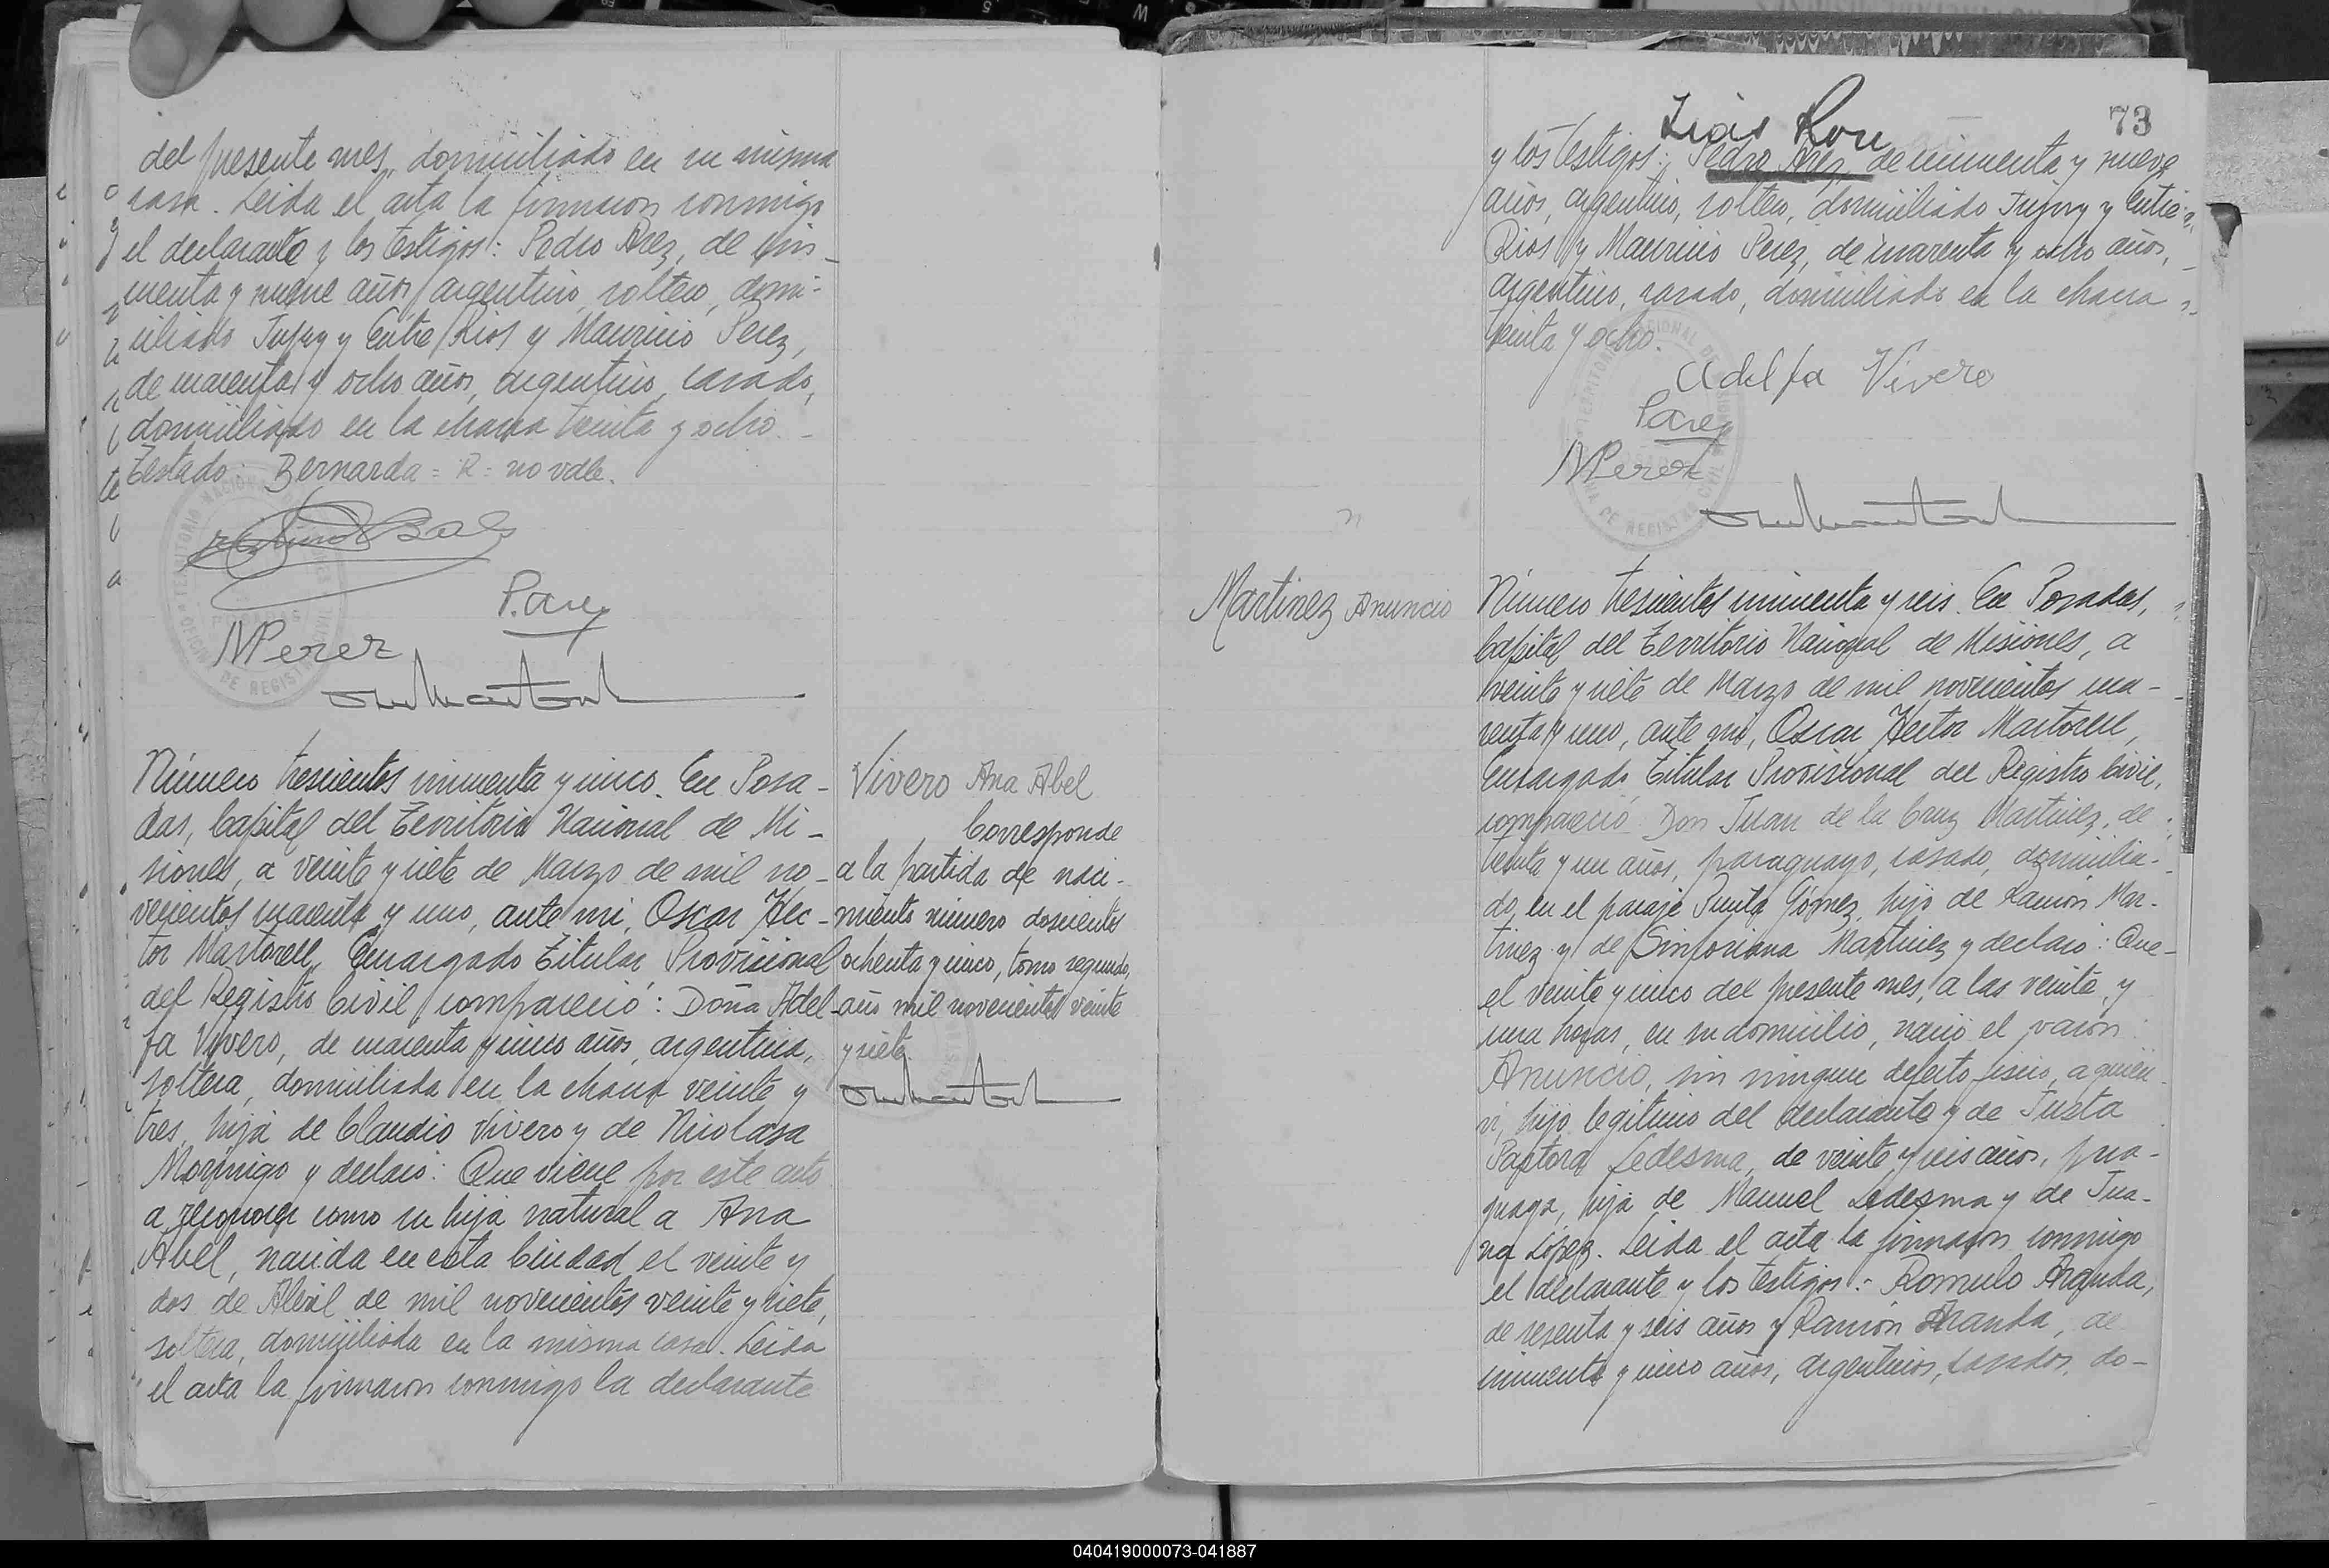 del presente mes, domiciliado en su misma
casa. Leida el acta la firmaron conmigo
el declarante y los testigos: Pedro Arez, de cin-
cuenta y nueve años, argentino, soltero, domi-
ciliado Jujuy y Entre Rios y Mauricio Perez,
de cuarenta y ocho años, argentino, casado,
domiciliado en la chacra treinta y ocho.-
Testado: Bernarda = R = no vale.
P. Arez
MPerez
Número trescientos cincuenta y cinco. En Posa-
das, Capital del Territorio Nacional de Mi-
siones, a veinte y siete de Marzo de mil no-
vecientos cuarenta y uno, ante mi, Oscar Hec-
tor Martorell, Encargado Titular Provisional
del Registro Civil compareció: Doña Adel-
fa Vivero, de cuarenta y cinco años, argentina,
soltera, domiciliada en la chacra veinte y
tres, hija de Claudio Vivero y de Nicolasa
Morinigo y declaró: Que viene por este acto
a reconocer como su hija natural a Ana
Abel, nacida en esta Ciudad el veinte y
dos de Abril de mil novecientos veinte y siete,
soltera, domiciliada en la misma casa. Leida
el acta la firmaron conmigo la declarante
Vivero Ana Abel
Corresponde
a la partida de naci-
miento número doscientos
ochenta y cinco, tomo segundo,
año mil novecientos veinte
y siete.
73
y los testigos: Pedro Arez, de cincuenta y nueve
años, argentino, soltero, domiciliado Jujuy y Entre
Rios y Mauricio Perez, de cuarenta y ocho años,
argentino, casado, domiciliado en la chacra
treinta y ocho.
Adelfa Vivero
P. Arez
MPerez
Martinez Anuncio
Número trescientos cincuenta y seis. En Posadas,
Capital del Territorio Nacional de Misiones, a
veinte y siete de Marzo de mil novecientos cua-
renta y uno, ante mi, Oscar Hector Martorell,
Encargado Titular Provisional del Registro Civil,
compareció: Don Juan de la Cruz Martinez, de
treinta y un años, paraguayo, casado, domicilia-
do en el paraje Punta Gómez, hijo de Ramón Mar-
tinez y de Sinforiana Martinez y declaró: Que-
el veinte y cinco del presente mes, a las veinte y
una horas, en su domicilio, nació el varón
Anuncio, sin ningun defecto fisico, a quien
vi, hijo legitimo del declarante y de Justa
Pastora Ledesma, de veinte y seis años, para-
guaya, hija de Manuel Ledesma y de Jua-
na López. Leida el acta la firmaron conmigo
el declarante y los testigos: Romulo Aranda,
de sesenta y seis años y Ramón Aranda, de
cincuenta y cinco años, argentinos, casados, do-
040419000073-041887